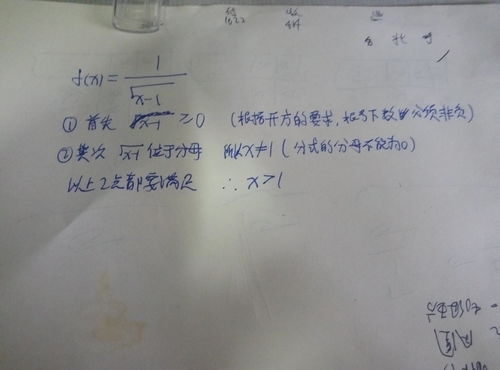 f(x) = 1/√(x-1)
① 首先 x-1 ≥ 0 (根据开方的要求, 根号下数必须非负)
② 其次 √x-1 位于分母 所以 x≠1 (分式的分母不能为0)
以上2点都要满足 ∴ x>1